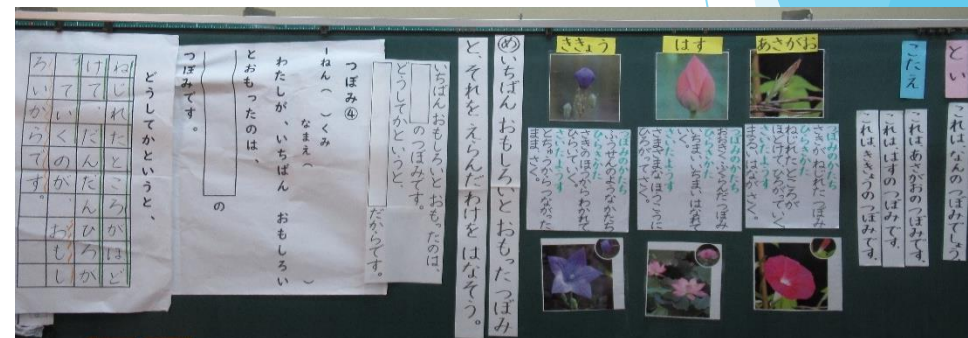 とい
これは、なんのつぼみでしょう
こたえ
これは、あさがおのつぼみです。
これは、はすのつぼみです。
これは、ききょうのつぼみです。
あさがお
つぼみのかたち
さきが ねじれた つぼみ
ひらきかた
ねじれたところが
ほどけて、ひろがっていく
さいたようす
まるい はなが さく。
はす
つぼみのかたち
おおきく ふくらんだ つぼみ
ひらきかた
いちまい いちまい はなれて
いく。
さいたようす
さまざまな ほうこうに
ひろがって さく。
ききょう
つぼみのかたち
ふうせんのような かたち
ひらきかた
さきのほうから わかれて
ひらいていく。
さいたようす
とちゅうから つながった
まま、さく。
め いちばん おもしろいと おもった つぼみ
と、それを えらんだ わけを はなそう。
いちばん おもしろいと おもったのは、
のつぼみです。
どうしてかというと、
だからです。
つぼみ④
一ねん( )くみ
なまえ( )
わたしが、いちばん おもしろい
とおもったのは、
の
つぼみです。
どうしてかというと、
ねじれたところがほど
けて、だんだんひろが
っていくのが、おもし
ろいからです。